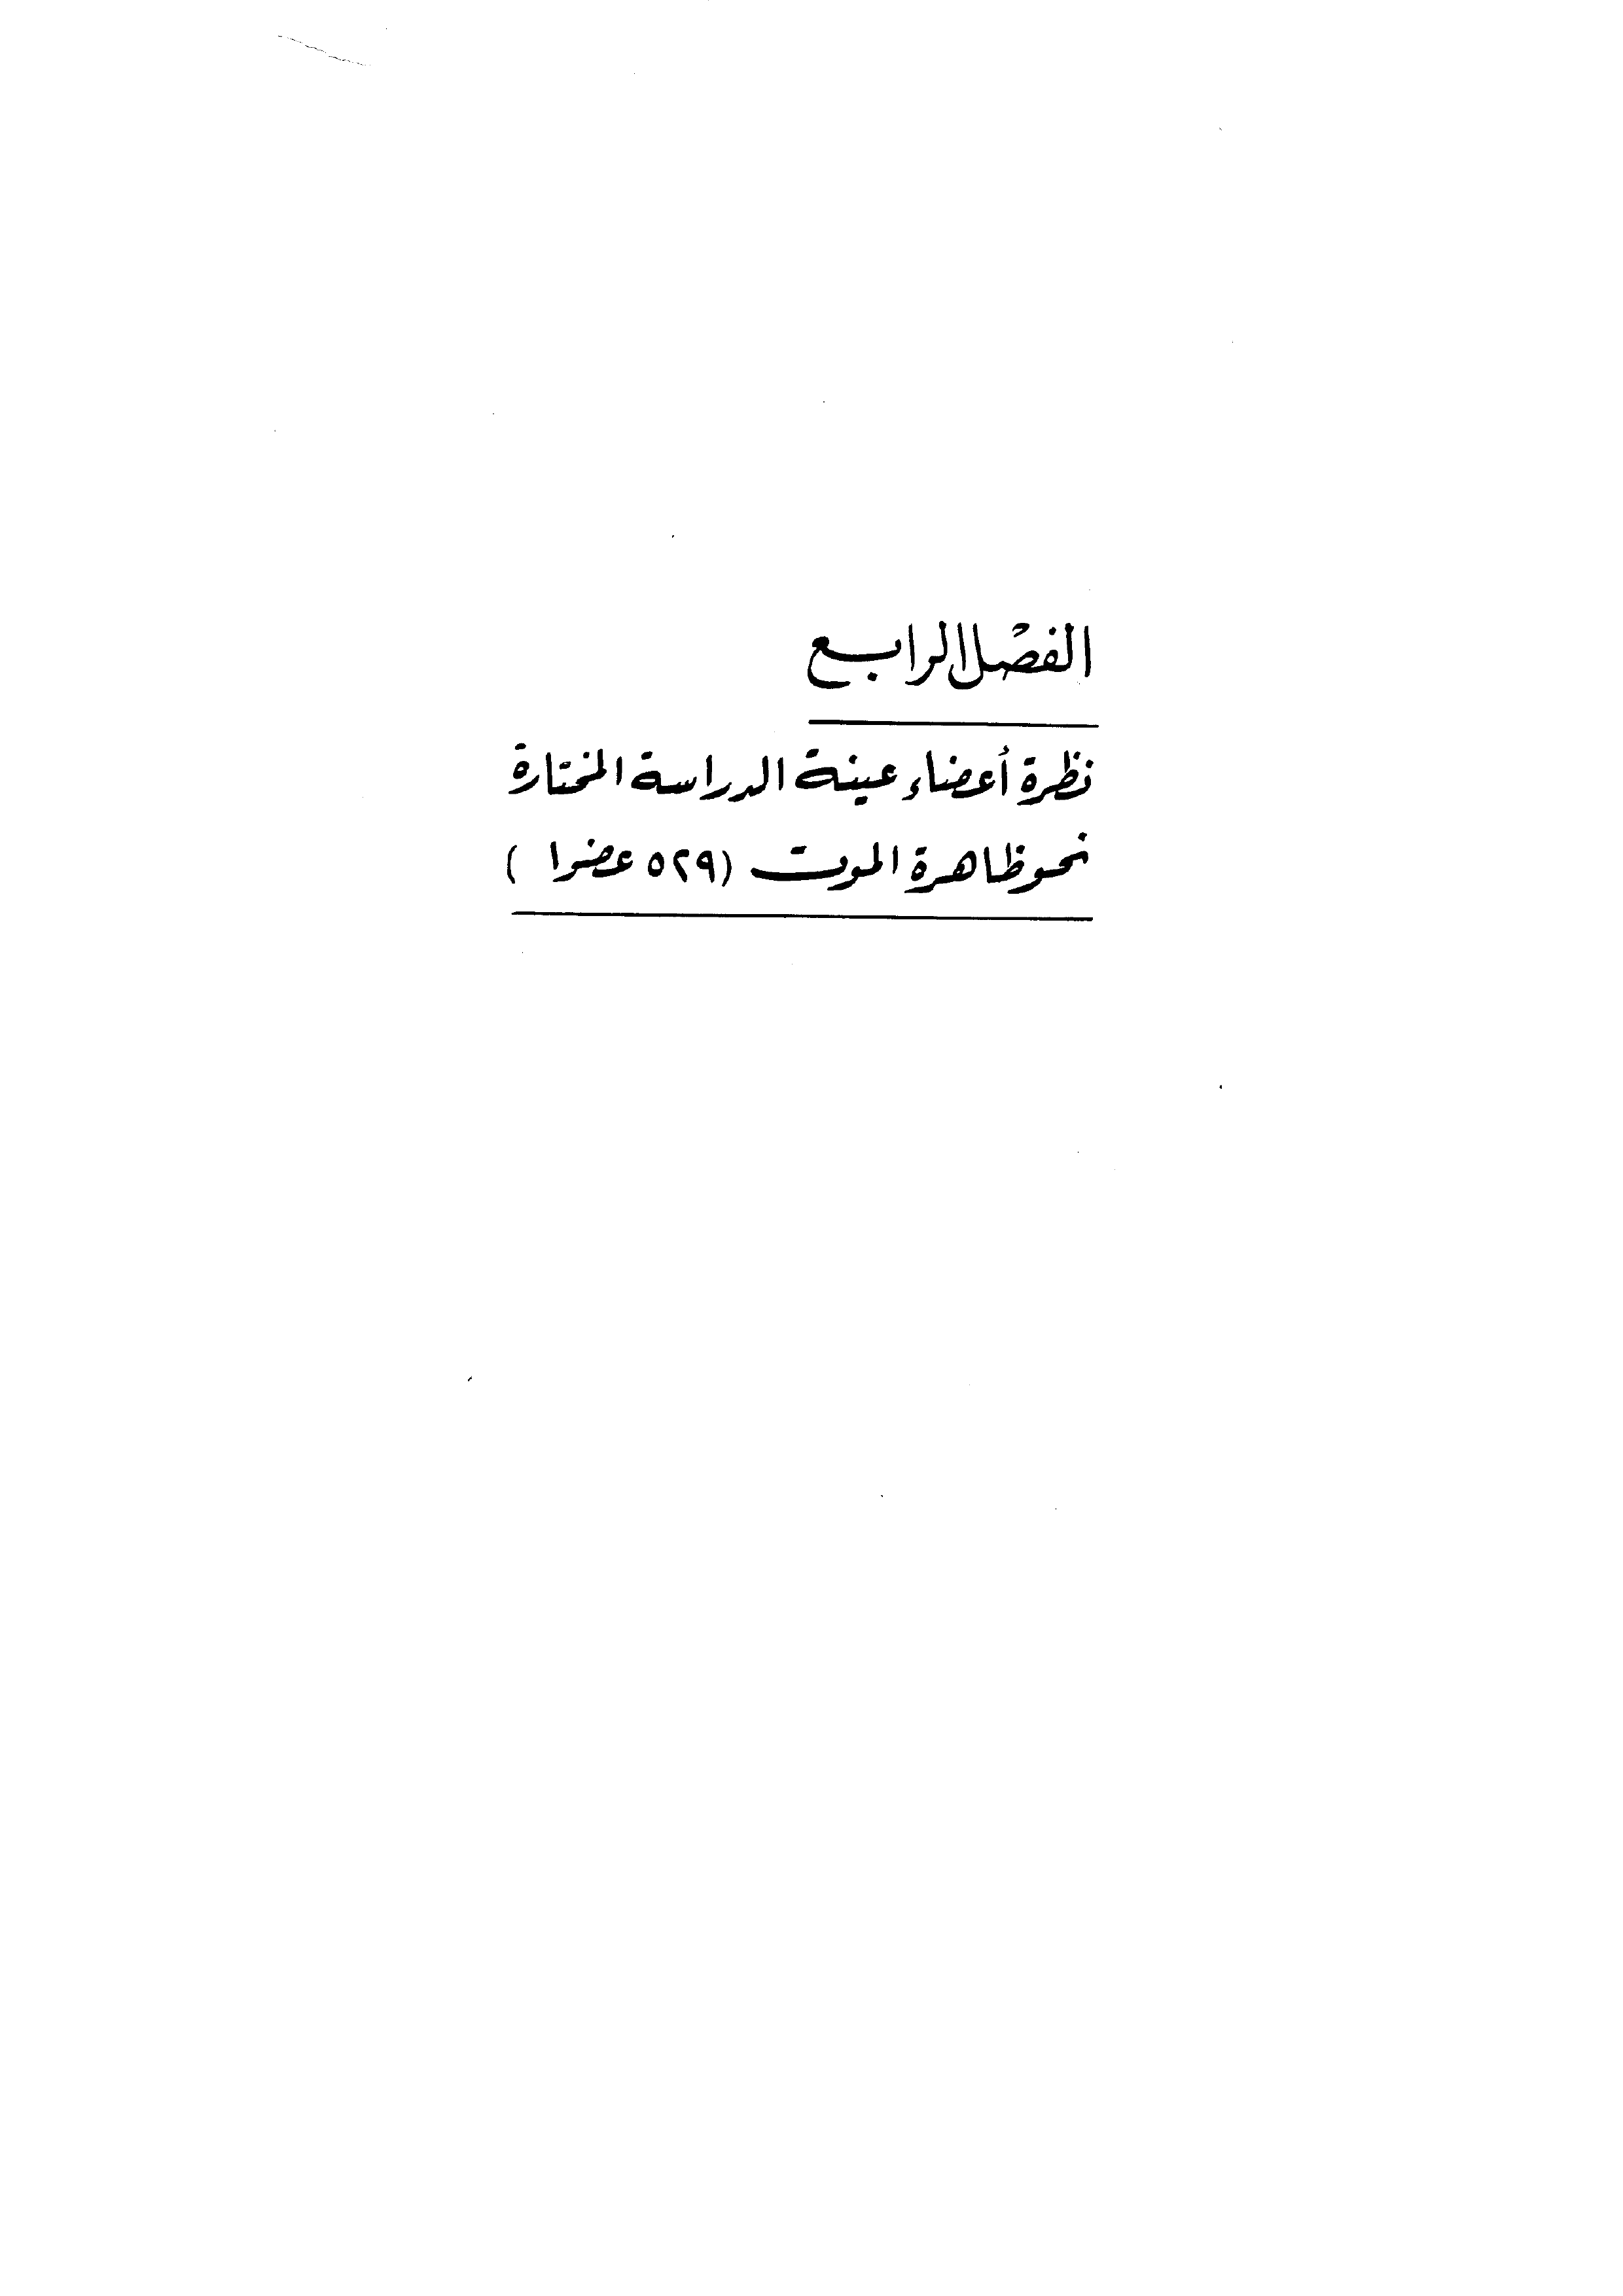 الفصل الرابع
نظرة أعضاء عينة الدراسة المختارة
نحو ظاهرة الموت (٥٢٩ عضوا )